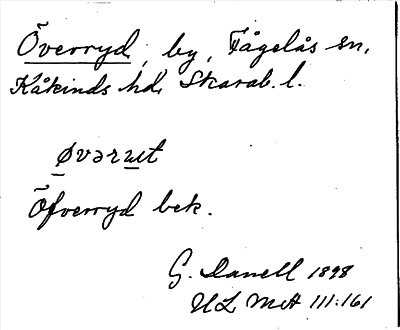 Överryd, by, Fågelås sn,
Kåkinds hd, Skarab. l.
øvərut
Öfverryd bek.
G. Danell 1898
ULMA 111:161